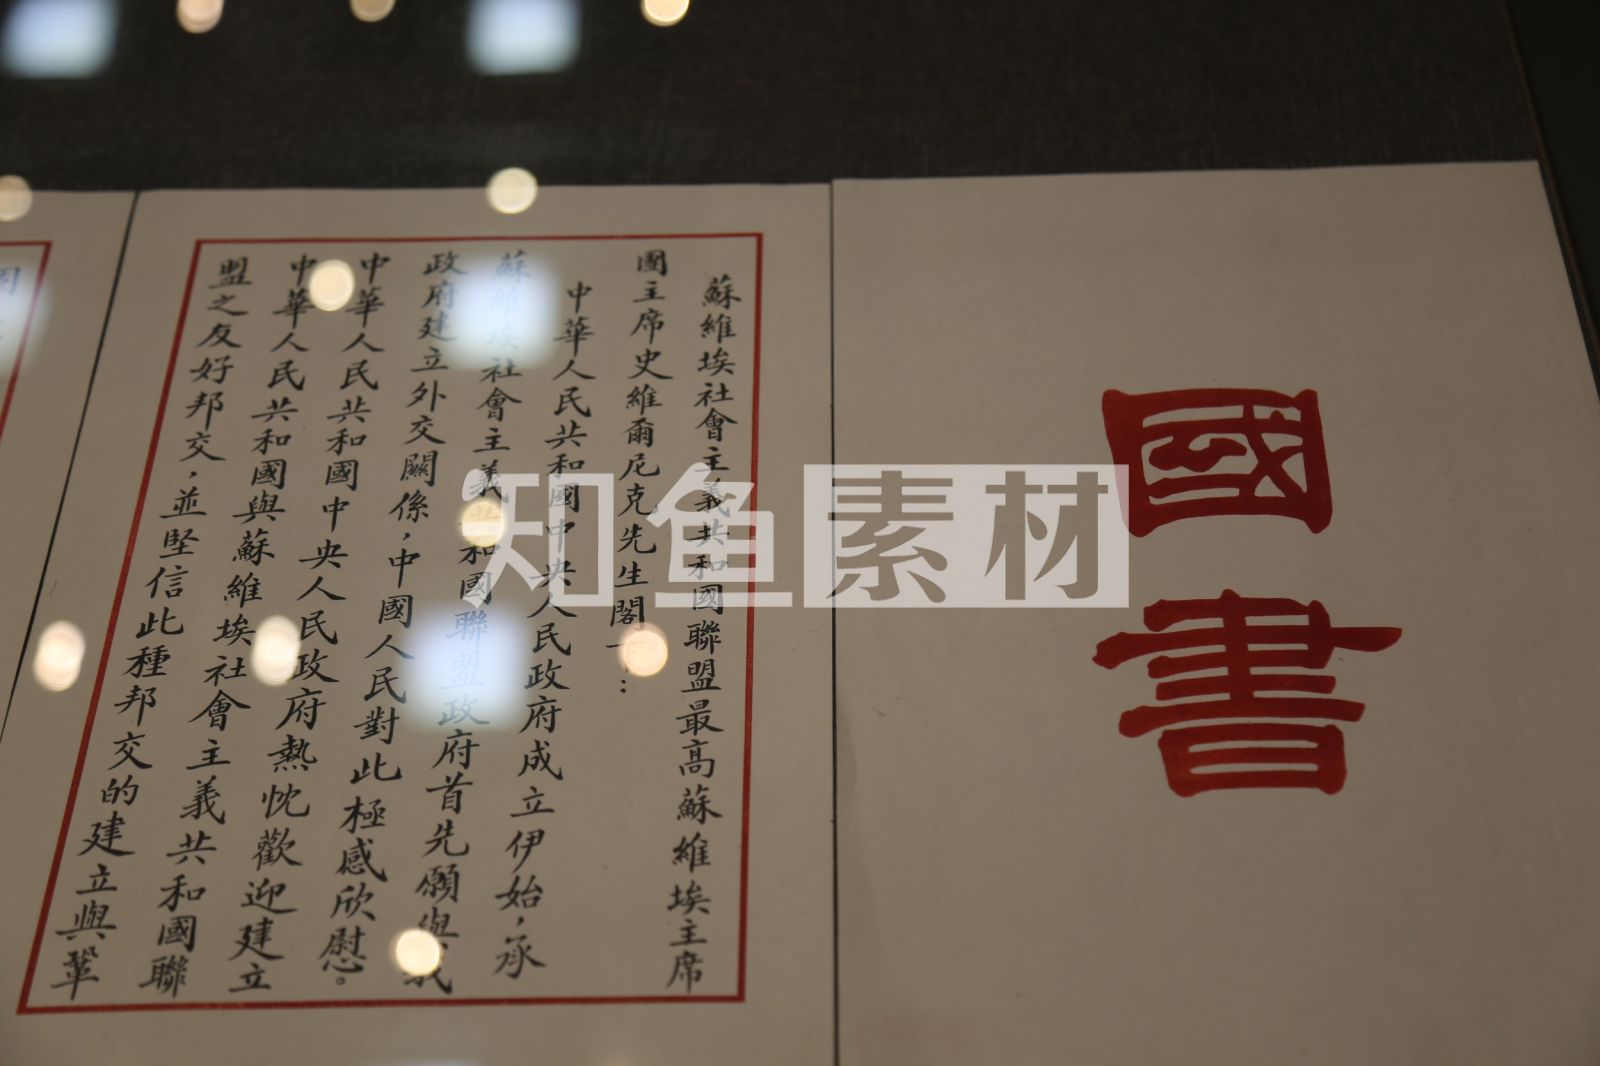 國書
蘇維埃社會主義共和國聯盟最高蘇維埃主席
團主席史維爾尼克先生閣下：
中華人民共和國中央人民政府成立伊始，承
蘇維埃社會主義共和國聯盟政府首先願與我
政府建立外交關係，中國人民對此極感欣慰。
中華人民共和國中央人民政府熱忱歡迎建立
中華人民共和國與蘇維埃社會主義共和國聯
盟之友好邦交，並堅信此種邦交的建立與鞏
知鱼素材